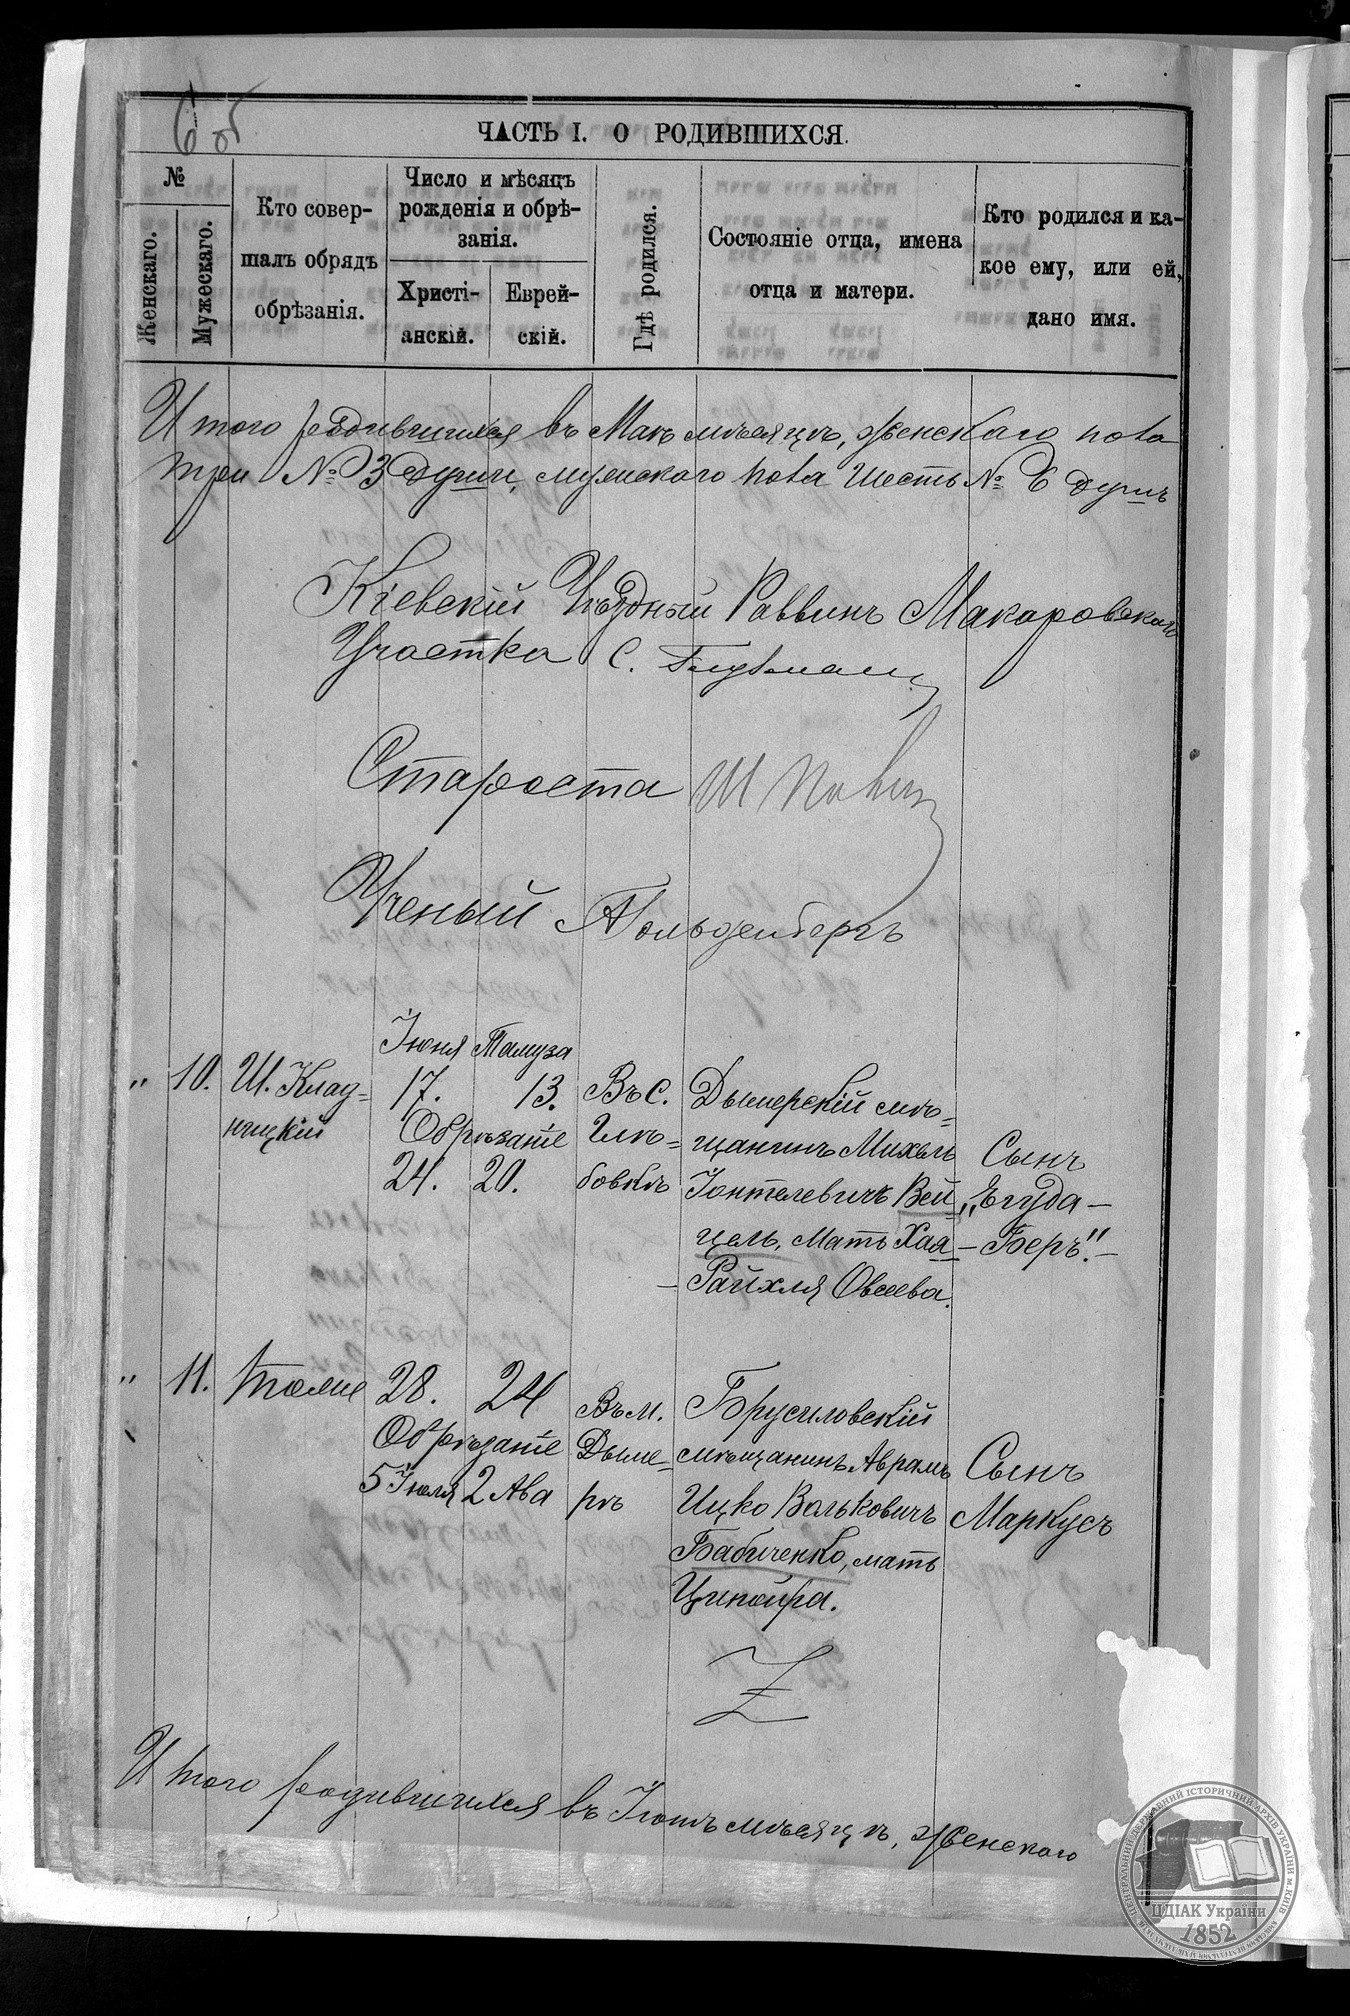 6 об
ЧАСТЬ I. О РОДИВШИХСЯ.
№
Женскаго.
Мужескаго.
Кто совер-
шалъ обрядъ
обрѣзанія.
Число и мѣсяцъ
рожденія и обрѣ-
занія.
Христі-
анскій.
Еврей-
скій.
Гдѣ родился.
Состояніе отца, имена
отца и матери.
Кто родился и ка-
кое ему, или ей,
дано имя.
Итого родившихся въ Маѣ мѣсяцѣ, женскаго пола
три № 3 души, мужскаго пола шесть № 6 душъ
Кіевскій Уѣздный Раввинъ Макаровскаго
Участка С.
Староста Ш
Ученый Гольденбергъ
Іюня Тамуза
„ 10. Ш. Клад=
ницкій
17. 13.
Обрѣзаніе
24. 20.
Въ с.
Глѣ=
бовкѣ
Дымерскій мѣ=
щанинъ Михель
Іонтелевичъ Вей
цель, мать Хая
— Райхля Овсеева.
Сынъ
„Егуда —
— Беръ". —
„ 11. тоже
28. 24
Обрѣзаніе
5 Іюля 2 Ава
Въ м.
Дыме=
рѣ
Брусиловскій
мѣщанинъ Аврамъ
Ицко Вольковичъ
Бабиченко, мать
Ципойра.
Сынъ
Маркусъ
Итого родившихся въ Іюнѣ мѣсяцѣ, женскаго
ЦЕНТРАЛЬНИЙ ДЕРЖАВНИЙ ІСТОРИЧНИЙ АРХІВ УКРАЇНИ М.КИЇВ
ЦДІАК України
1852